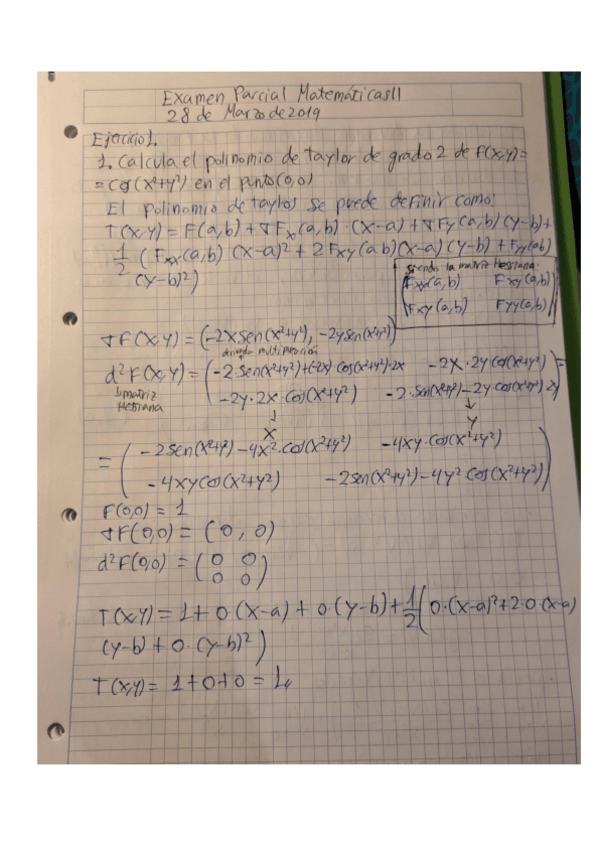 Examen Parcial Matemáticas II
28 de Marzo de 2019
Ejercicio 1.
1. Calcula el polinomio de taylor de grado 2 de F(x,y)=
= cos(x²+y²) en el punto (0,0)
El polinomio de taylos se puede definir como:
T(x,y) = F(a,b) + ∇Fx(a,b)·(x-a) + ∇Fy(a,b)(y-b)+
1/2 (Fxx(a,b)(x-a)² + 2Fxy(a b)(x-a)(y-b) + Fyy(a,b)
(y-b)²)
siendo la matriz Hessiana.
(Fxx(a,b) Fxy(a,b)
Fxy(a,b) Fyy(a,b))
∇F(x,y) = (-2xsen(x²+y²), -2ysen(x²+y²))
d²F(x,y) = (-2·sen(x²+y²)+(-2x)·cos(x²+y²)·2x -2x·2y cos(x²+y²)
-2y·2x·cos(x²+y²) -2·sen(x²+y²)-2y·cos(x²+y²)·2y) =
matriz
Hessiana
↓ ↓
x y
= (-2sen(x²+y²)-4x²·cos(x²+y²) -4xy·cos(x²+y²)
-4xycos(x²+y²) -2sen(x²+y²)-4y²·cos(x²+y²))
F(0,0) = 1
∇F(0,0) = (0, 0)
d²F(0,0) = (0 0
0 0)
T(x,y) = 1+0·(x-a) + 0·(y-b) + 1/2 (0·(x-a)²+2·0·(x-a)
(y-b) + 0·(y-b)²)
T(x,y) = 1+0+0 = 1,,